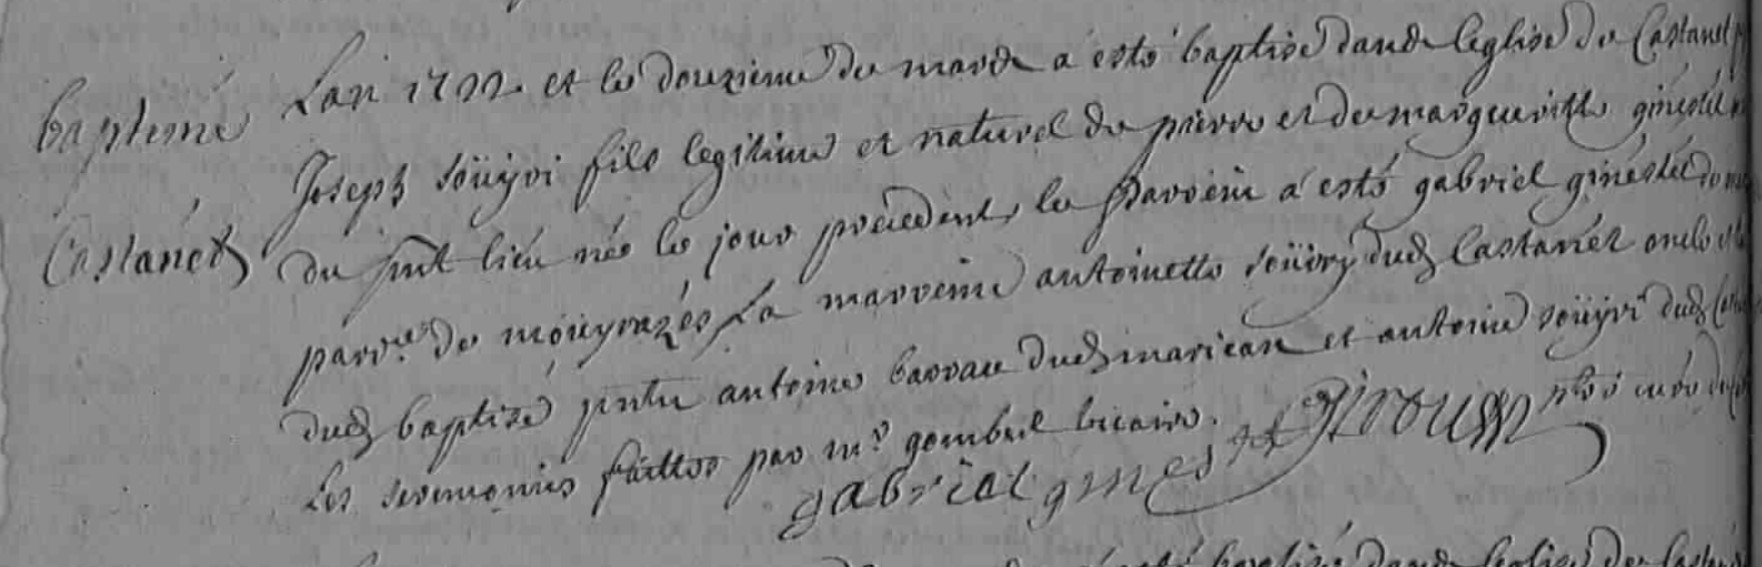 baptemé
Castanét
Lan 1722 et le douzieme de mards a esté baptisé dands leglise de Castanet
Joseph soüyri fils legitime et naturel de pierre et de margueritte ginéstét
du snt lieu née le jour précédent, le parrein a esté gabriel ginéstét
parre. de moüyrazés La marreine antoinette soüiry dud Castanét oncle
dud baptisé pntn antoine barrau dud marican et antoine soüyri dud
Les seremonies faittes par mr. gombert vicaire.
gabriel gines tet Giroussy pbre curé
a ésté baptisé dands leglise de